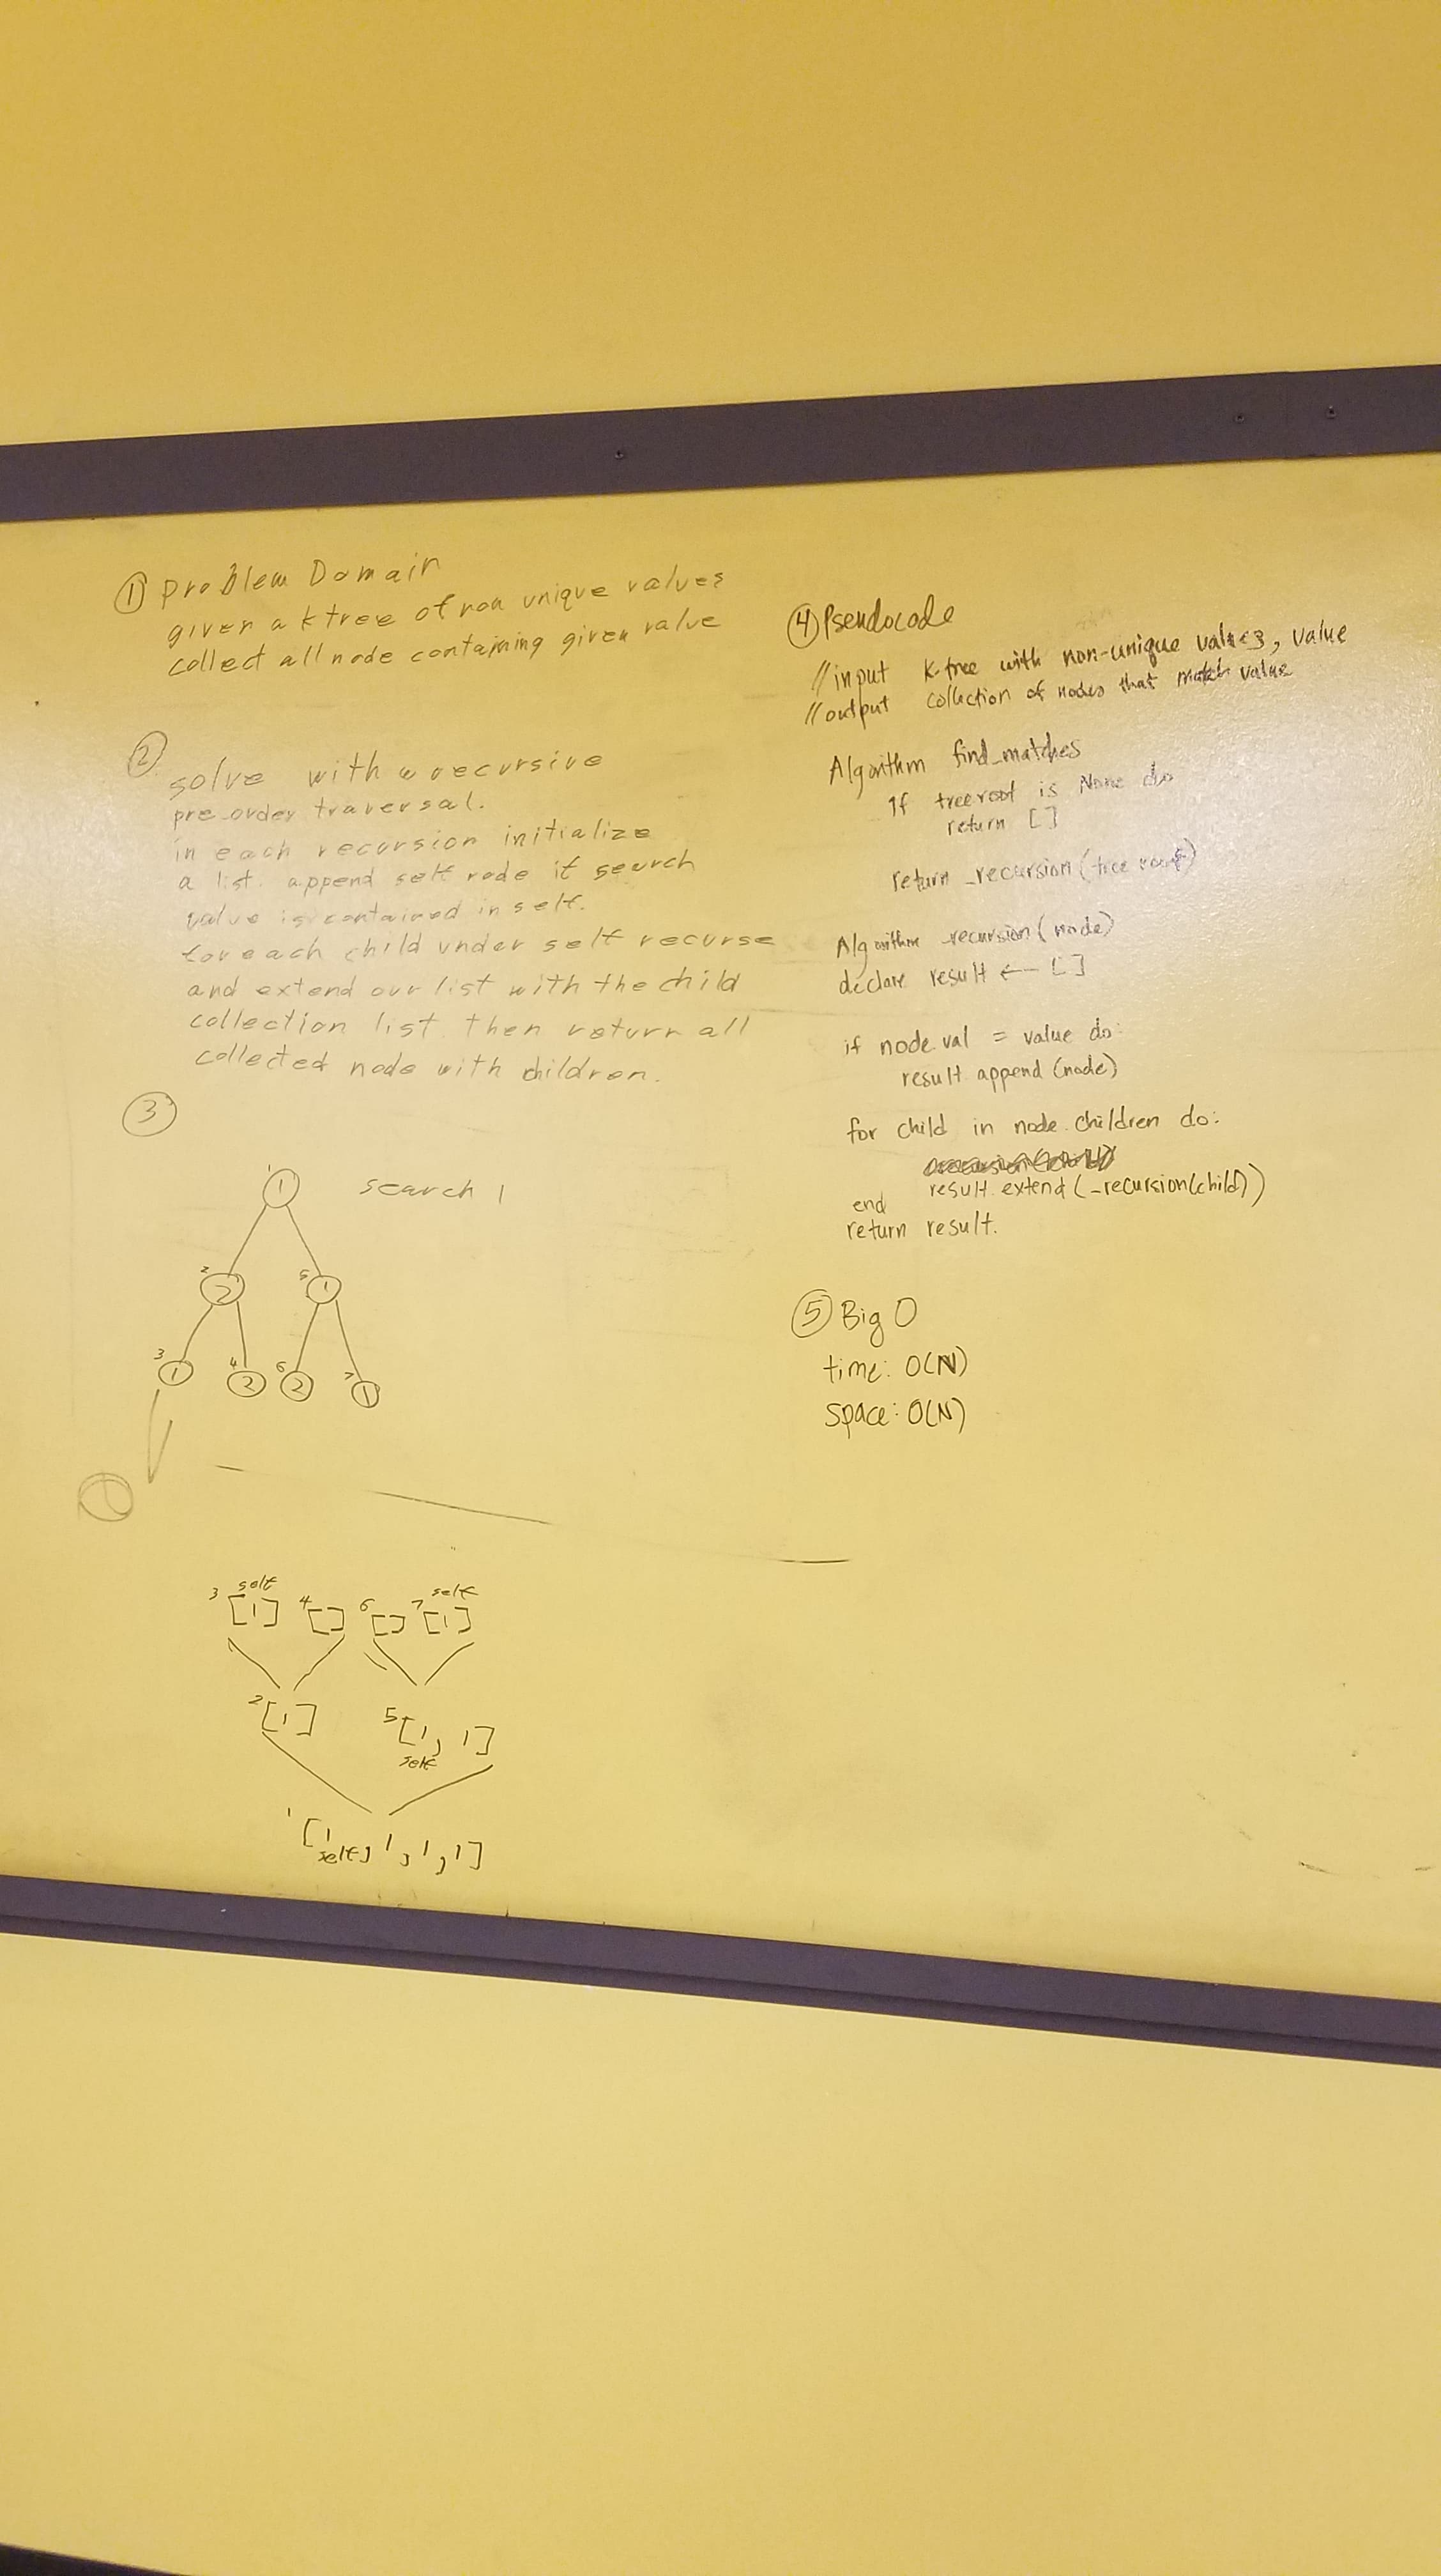 ① Problem Domain
given a k tree of non unique values
collect all node containing given value
②
solve with a recursive
pre-order traversal.
in each recursion initialize
a list. append self node if search
value is contained in self.
for each child under self recurse
and extend our list with the child
collection list. then return all
collected node with children.
③
1 1 search 1
2 2 5 1
3 1 4 2 6 2 7 1
3 self [1] 4 [] 6 [] 7 self [1]
2 [1] 5 [1, 1]
self
1 [1, 1, 1, 1]
self
④ Pseudocode
//input k-tree with non-unique values, value
//output collection of nodes that match value
Algorithm find_matches
If tree root is None do
return []
return _recursion(tree root)
Algorithm _recursion(node)
declare result ← []
if node.val = value do:
result.append(node)
for child in node.children do:
result.extend(_recursion(child))
end
return result.
⑤ Big O
time: O(N)
space: O(N)